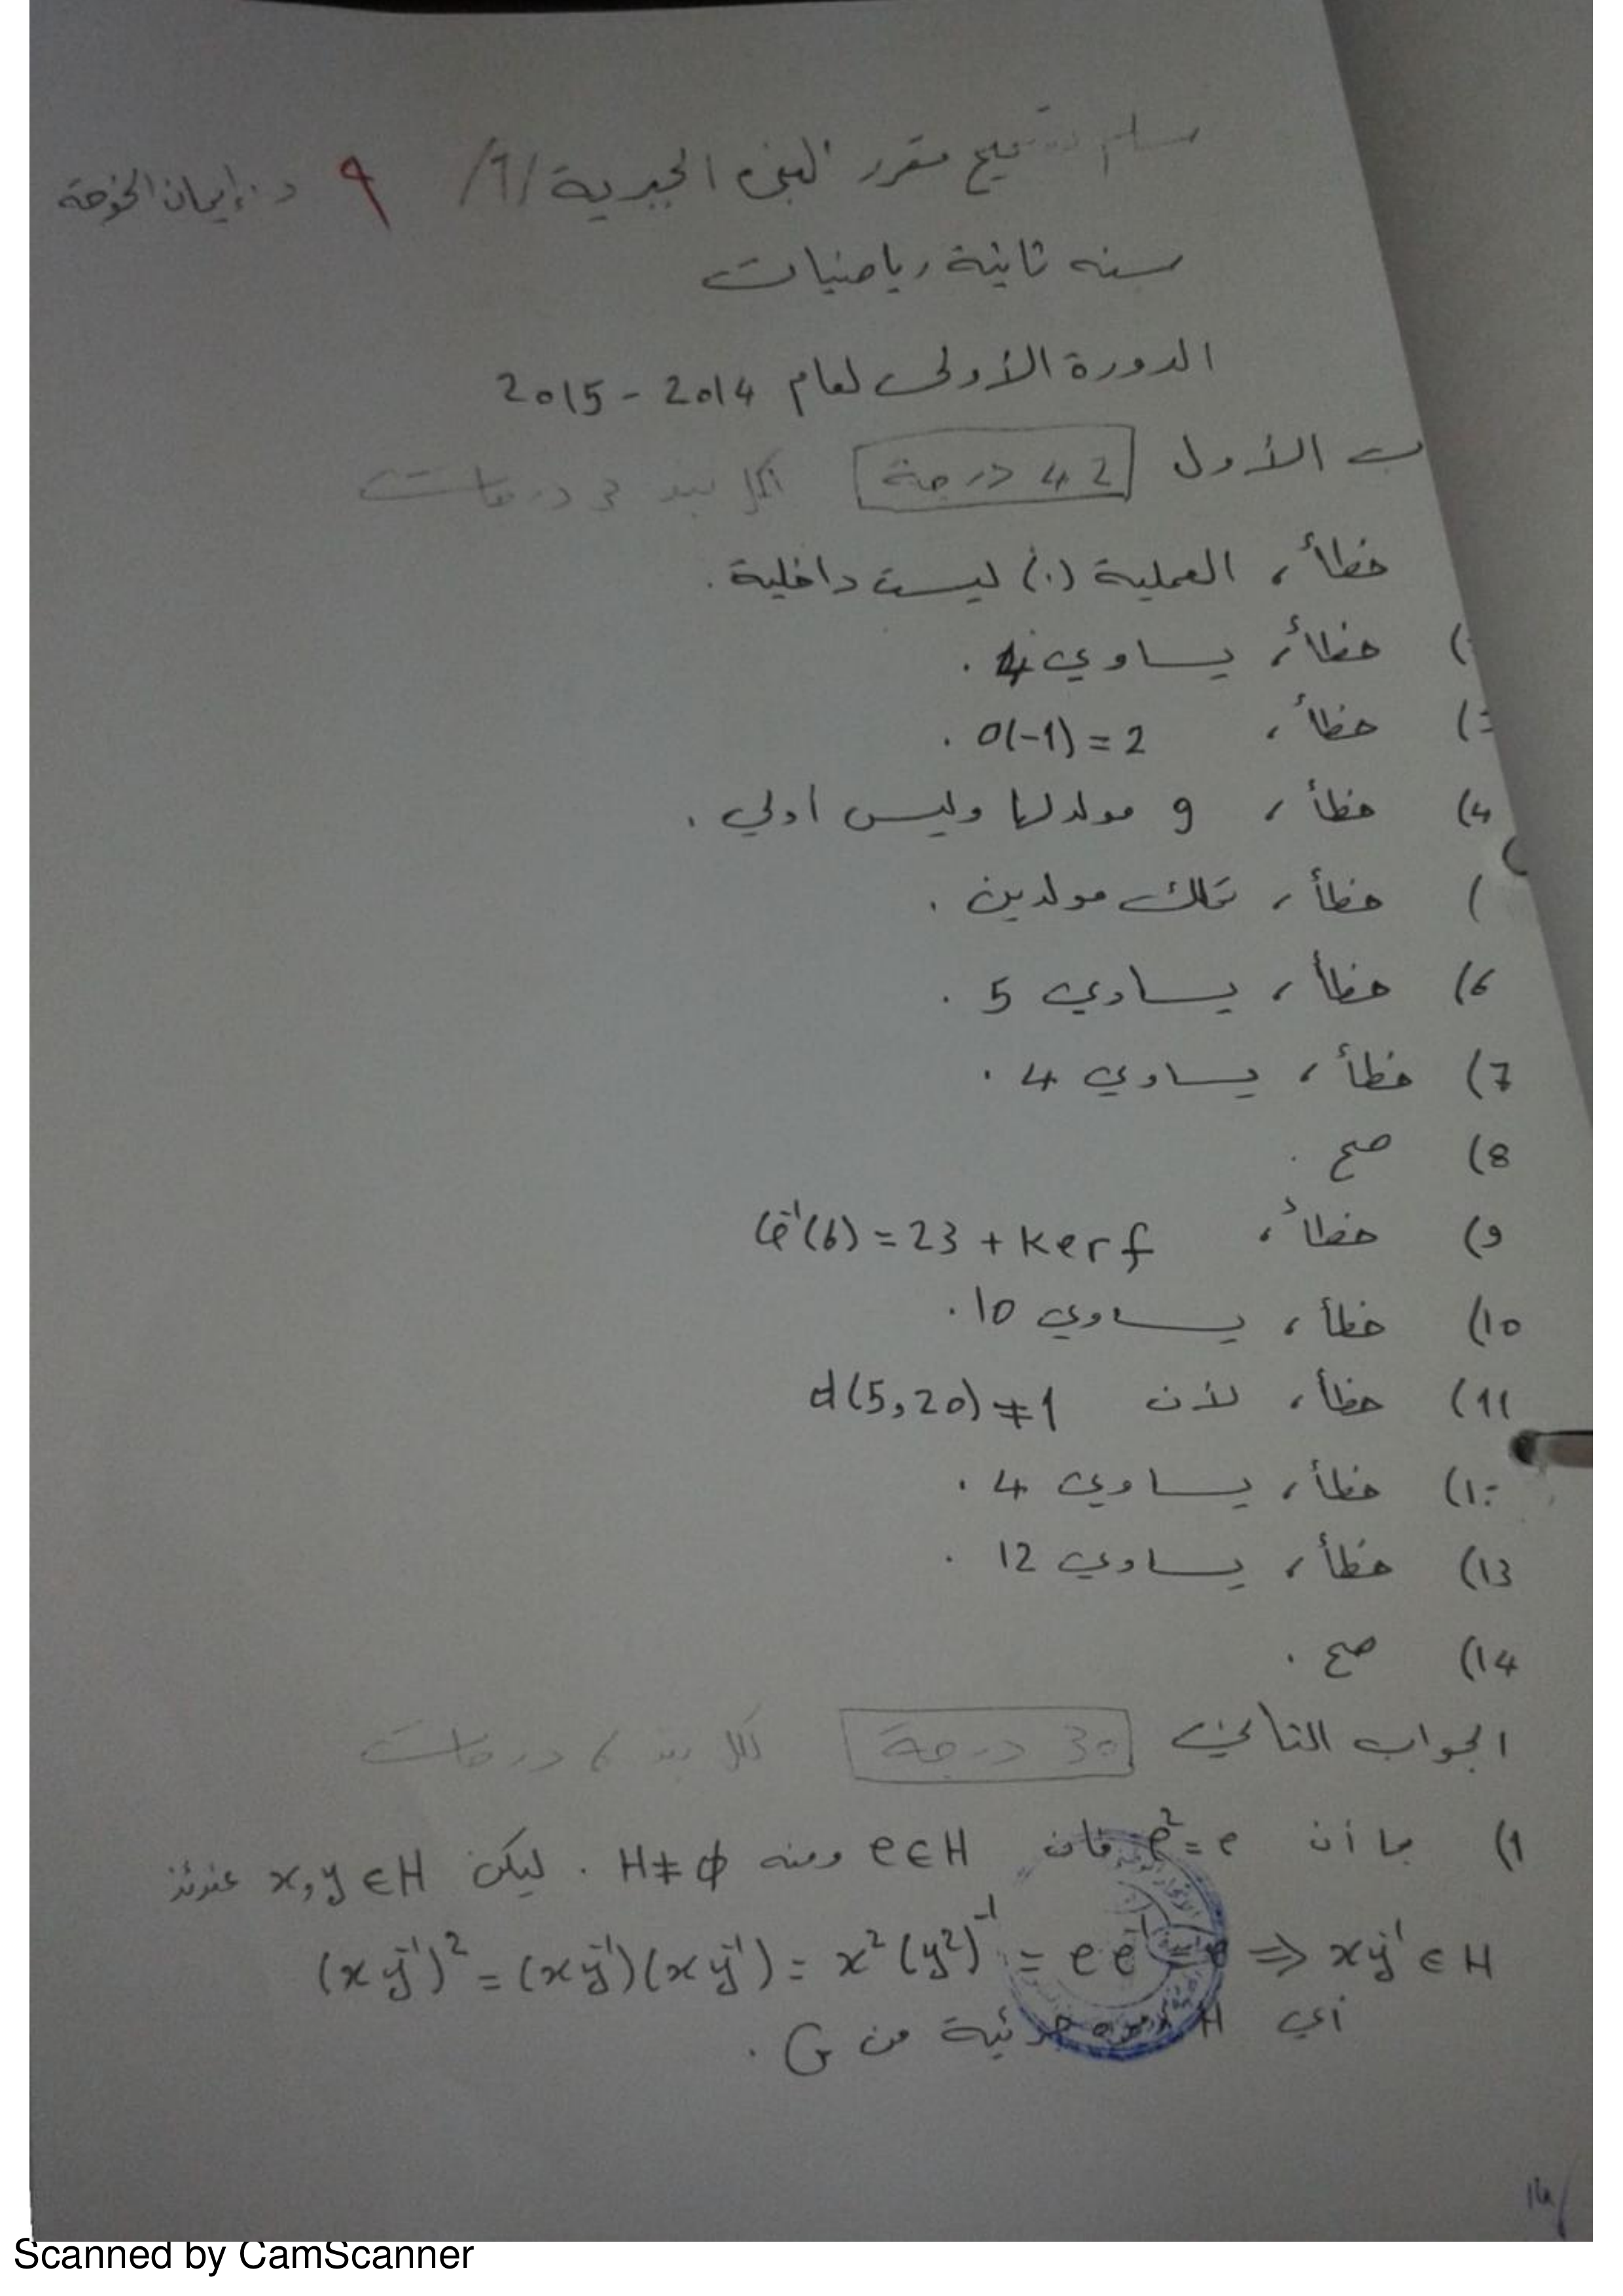 سلم تصحيح مقرر البنى الجبرية /1/ 9 د. إيمان الخوجة
سنه ثانية رياضيات
الدورة الأولى لعام 2014 - 2015
ب الأول 42 درجة لكل بند 3 درجات
خطأ، العملية (.) ليست داخلية .
) خطأ، يساوي 4 .
) خطأ، o(-1) = 2 .
4) خطأ، 9 مولد لها وليس أولي .
) خطأ، تملك مولدين .
6) خطأ، يساوي 5 .
7) خطأ، يساوي 4 .
8) صح .
9) خطأ، φ⁻¹(6) = 23 + ker f
10) خطأ، يساوي 10 .
11) خطأ، لأن d(5,20) ≠ 1
1) خطأ، يساوي 4 .
13) خطأ، يساوي 12 .
14) صح .
الجواب الثاني 30 درجة لكل بند 6 درجات
1) بما أن e² = e فان e ∈ H ومنه H ≠ ϕ . ليكن x, y ∈ H عندئذ
(x y⁻¹)² = (x y⁻¹)(x y⁻¹) = x² (y²)⁻¹ = e e⁻¹ = e ⇒ x y⁻¹ ∈ H
أي H زمرة جزئية من G .
Scanned by CamScanner